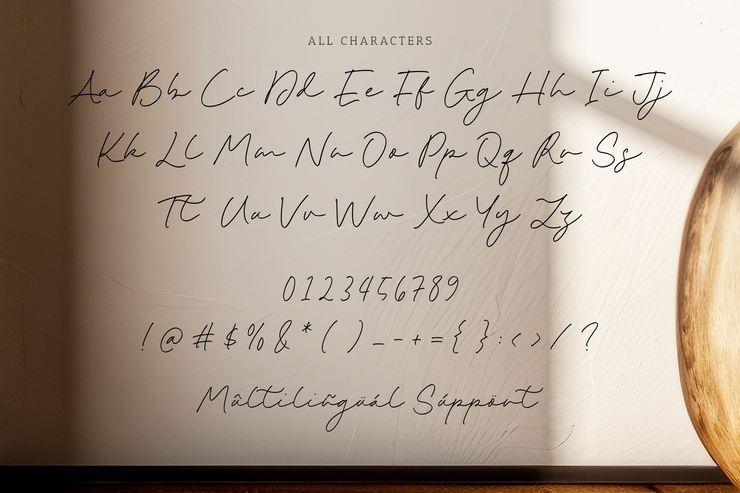 ALL CHARACTERS
Aa Bb Cc Dd Ee Ff Gg Hh Ii Jj
Kk Ll Mm Nn Oo Pp Qq Rr Ss
Tt Uu Vv Ww Xx Yy Zz
0123456789
! @ # $ % & * ( ) _ - + = { } : < > / ?
Mûltiliñgüál Sáppört